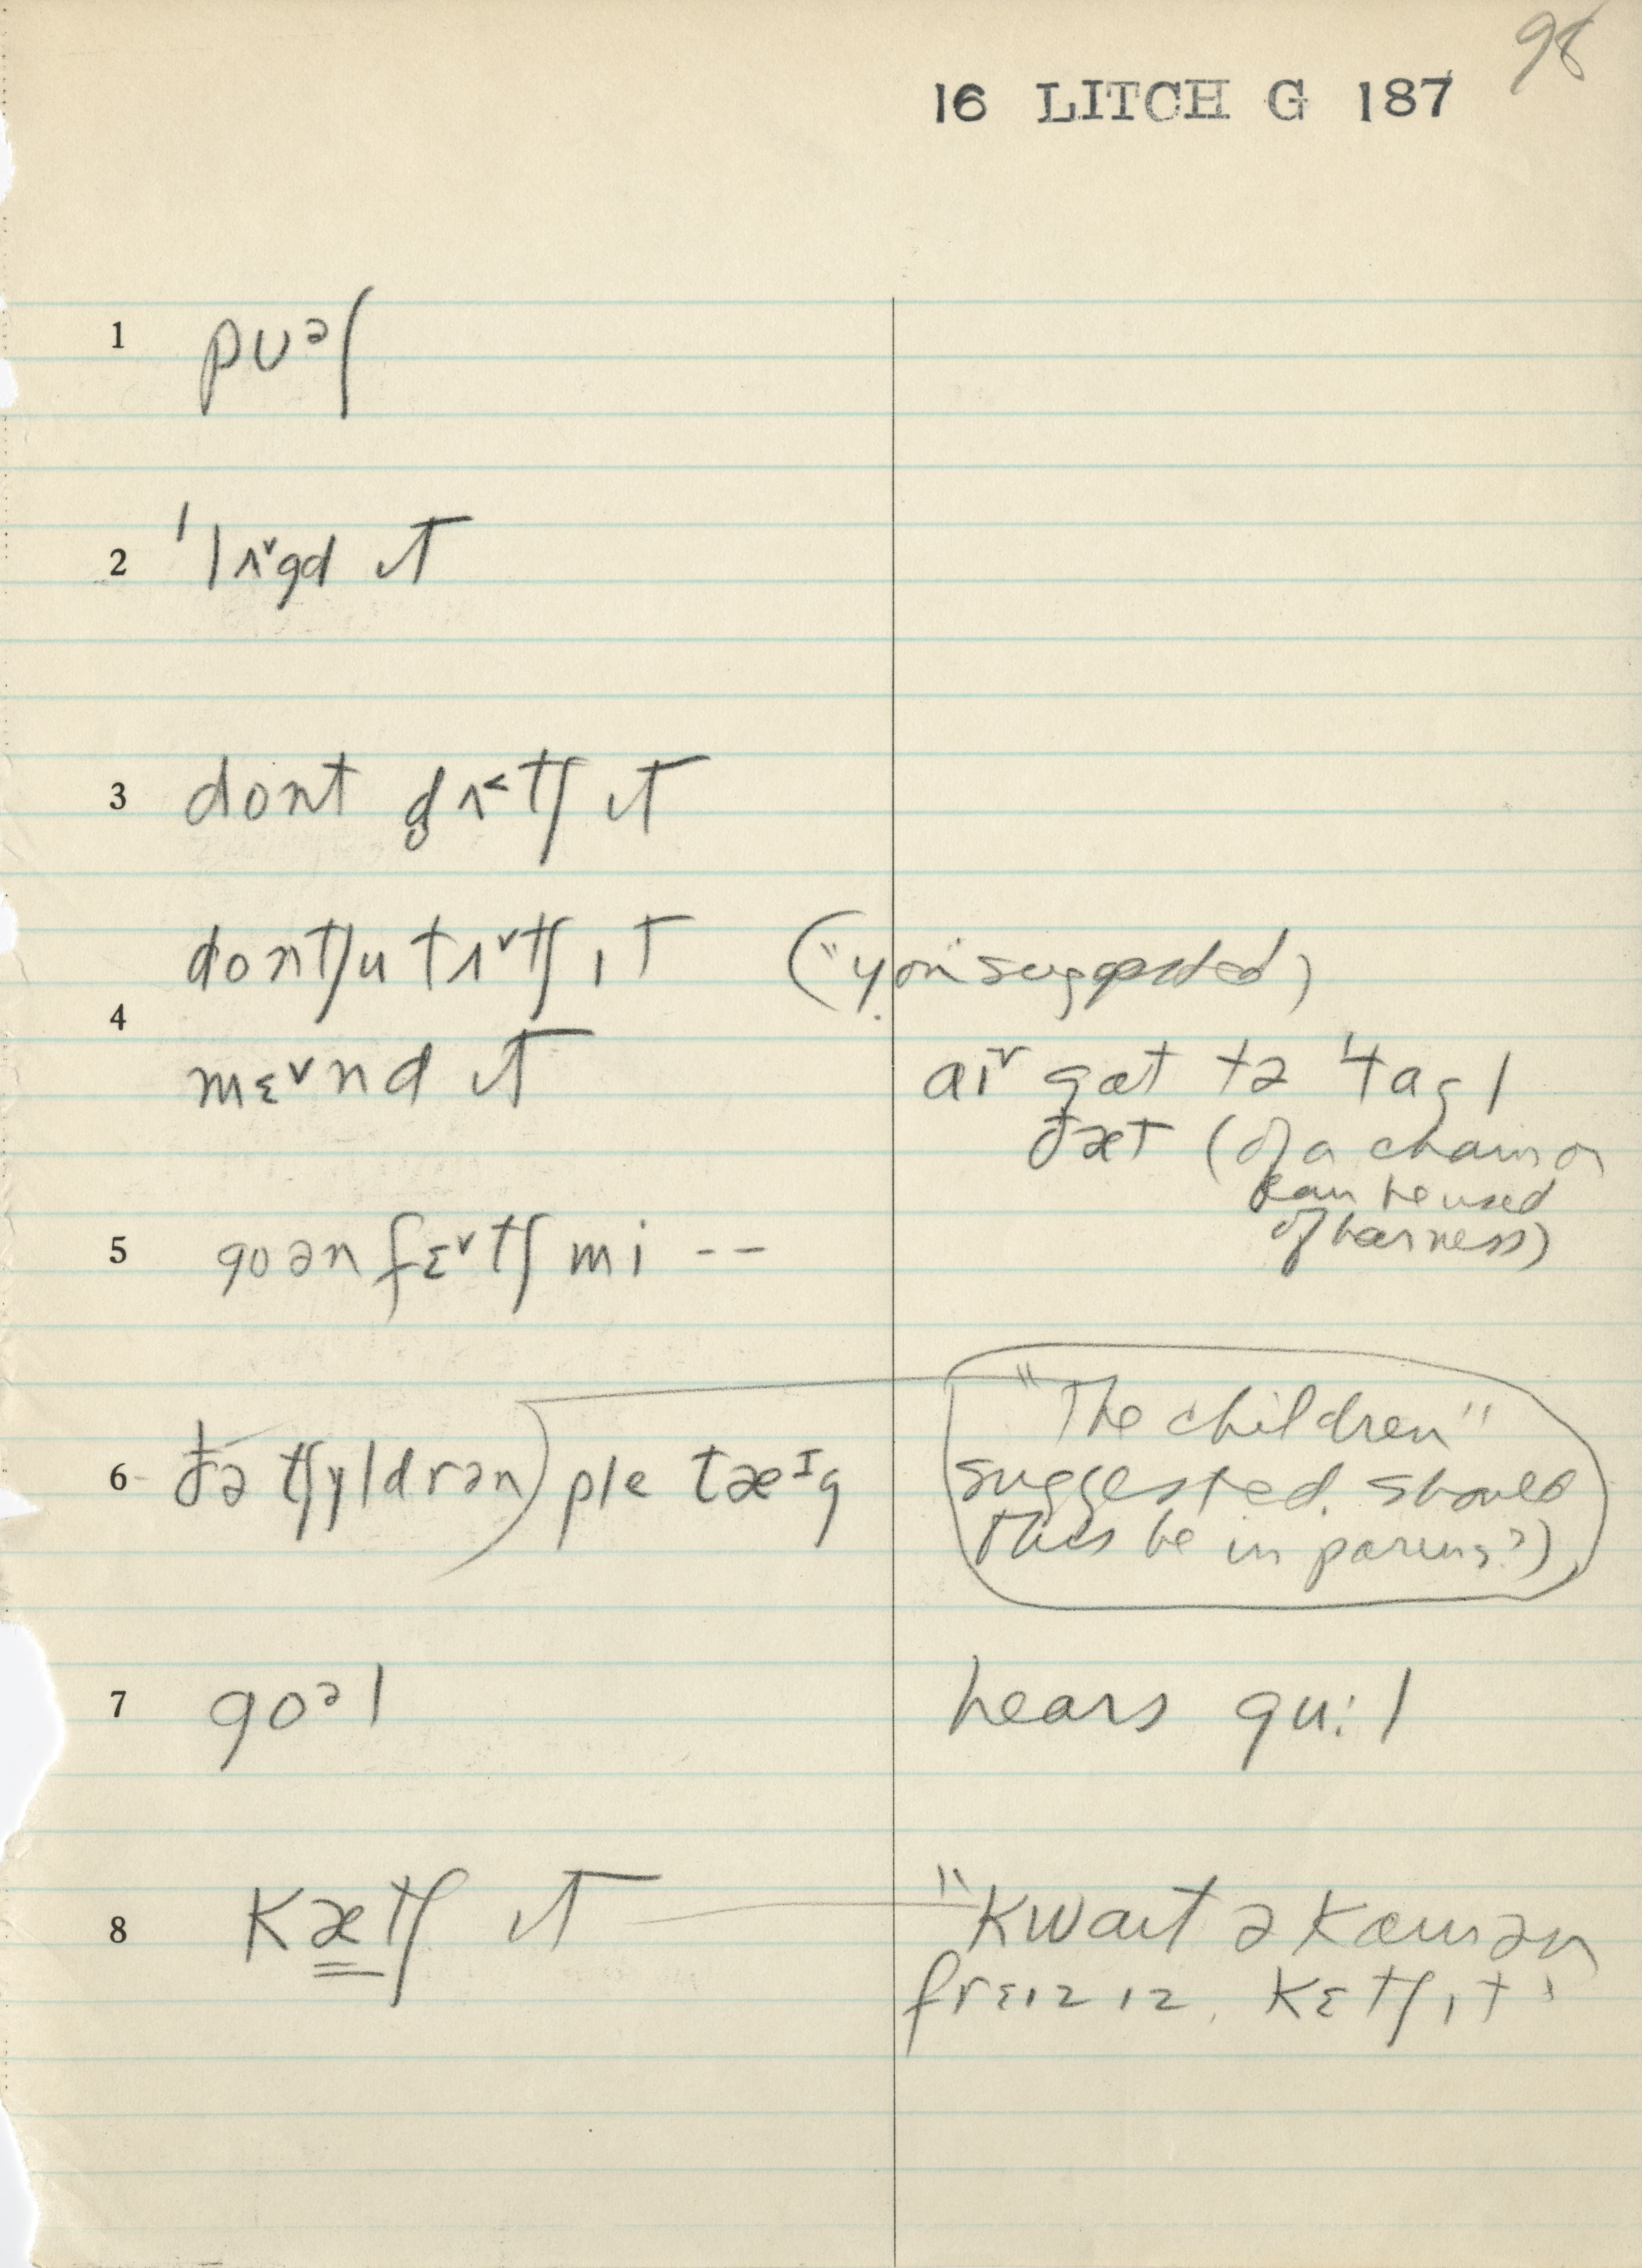 98
16 LITCH G 187
1 pʊᵊl
2 ˈlʌ˅gd ɪt
3 dont d̥ʌ˂tʃ ɪt
dontʃu tʌ˅tʃ ɪt ("you" suggested)
4
mɛ˅nd ɪt
aɪ˅ gɑt tə ˈtagl
ðæt (of a chain or
can be used
of harness)
5 goən fɛ˅tʃ mi --
6 ðə tʃyldrən) ple tæᴵg
"The children"
suggested. Should
this be in parens?)
7 goᵊl
hears gu:l
8 kætʃ ɪt
"kwaɪt ə kɑmən
frɛɪz ɪz, kɛtʃ ɪt"